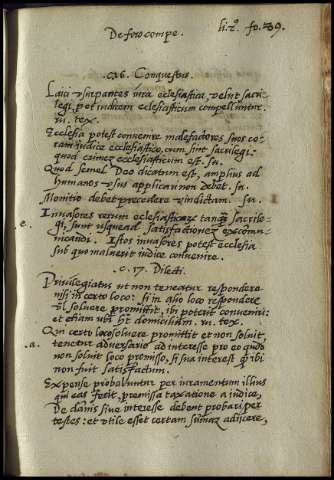 De foro compe.
li. 2. fo. 39.
.c. 16. Conquestus.
Laici usurpantes iura eclesiastica, velut sacri-
legi, pot iudicem eclesiasticum compelluntur.
in. tex.
Ecclesia potest convenire malefactores suos co-
ram iudice ecclesiastico, cum sint sacrilegi:
quod crimen ecclesiasticum est. In.
Quod semel Deo dicatum est, amplius ad
humanos usus applicari non debet. In.
Monitio debet precedere vindictam. In.
e. Invasores rerum eclesiasticarum tanq̃ sacrile-
gi, sunt usquead satisfactionem excomu-
nicandi. Istos invasores potest ecclesia
sub quo maluerit iudice convenire.
c. 17. Dilecti.
Privilegiatus ut non teneatur respondere
nisi in certo loco: si in alio loco respondere
vel solvere promittit, ibi poterit conveniri:
et etiam ubi ht domicilium. in. tex.
Qui certo loco solvere promittit et non solvit,
.a. tenetur adversario ad interesse pro eo quod
non solvit loco promisso, si sua interest q̃ ibi
non fuit satisfactum.
Expense probabuntur per iuramentum illius
qui eas fecit, premissa taxatione a iudice,
De damnis sive interesse debent probari per
testes: et utile esset certam sumam adiicere,